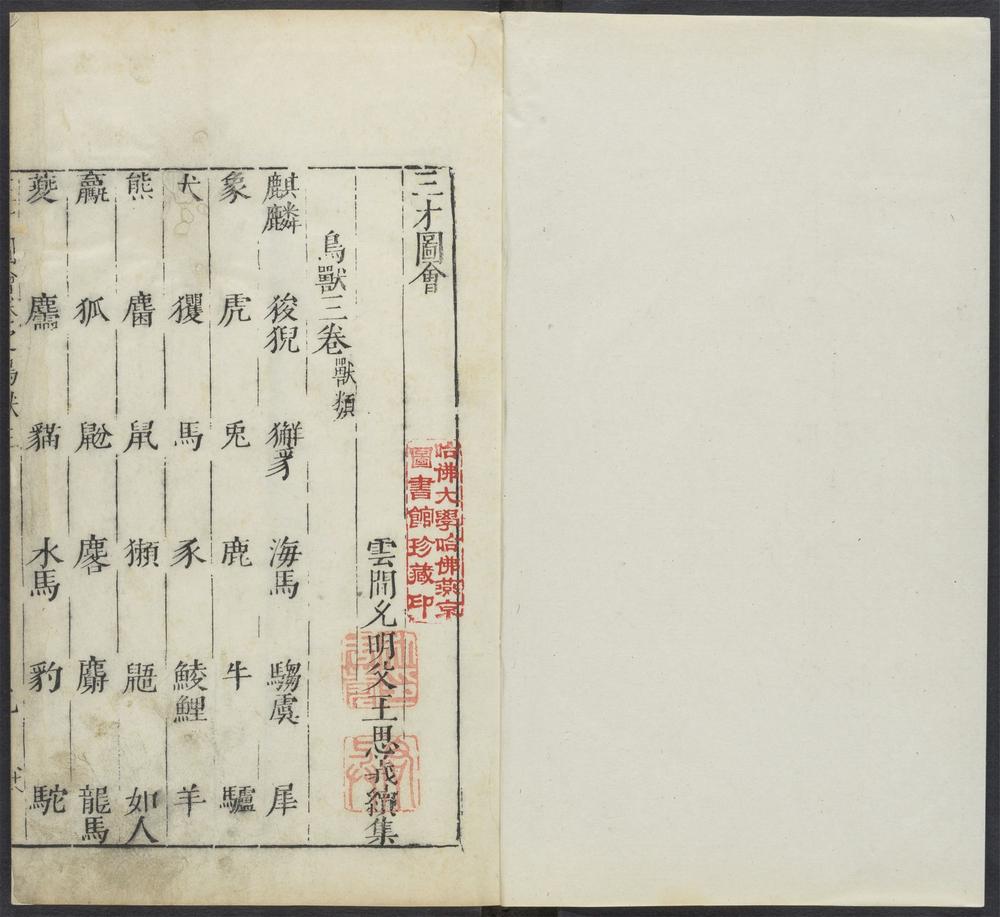 三才圖會
哈佛大學哈佛燕京
圖書館珍藏印
雲間允明父王思義續集
鳥獸三卷 獸類
麒麟 狻猊 獬豸 海馬 騶虞 犀
象 虎 兎 鹿 牛 驢
犬 玃 馬 豕 鯪鯉 羊
熊 鼠 獺 如人
狐 麔 麝 龍馬
夔 貓 水馬 豹 駝